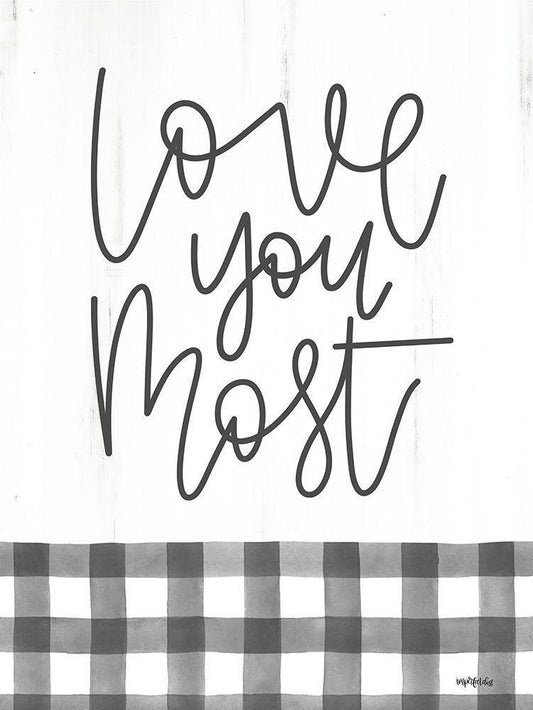 love
you
Most
imperfect dust